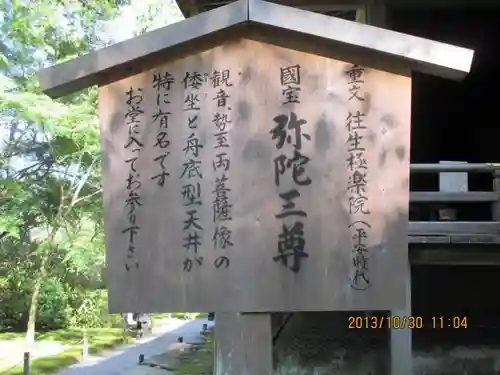 重文 往生極楽院(平安時代)
國宝 弥陀三尊
観音、勢至両菩薩像の
倭坐と舟底型天井が
特に有名です
お堂に入ってお参り下さい
2013/10/30 11:04